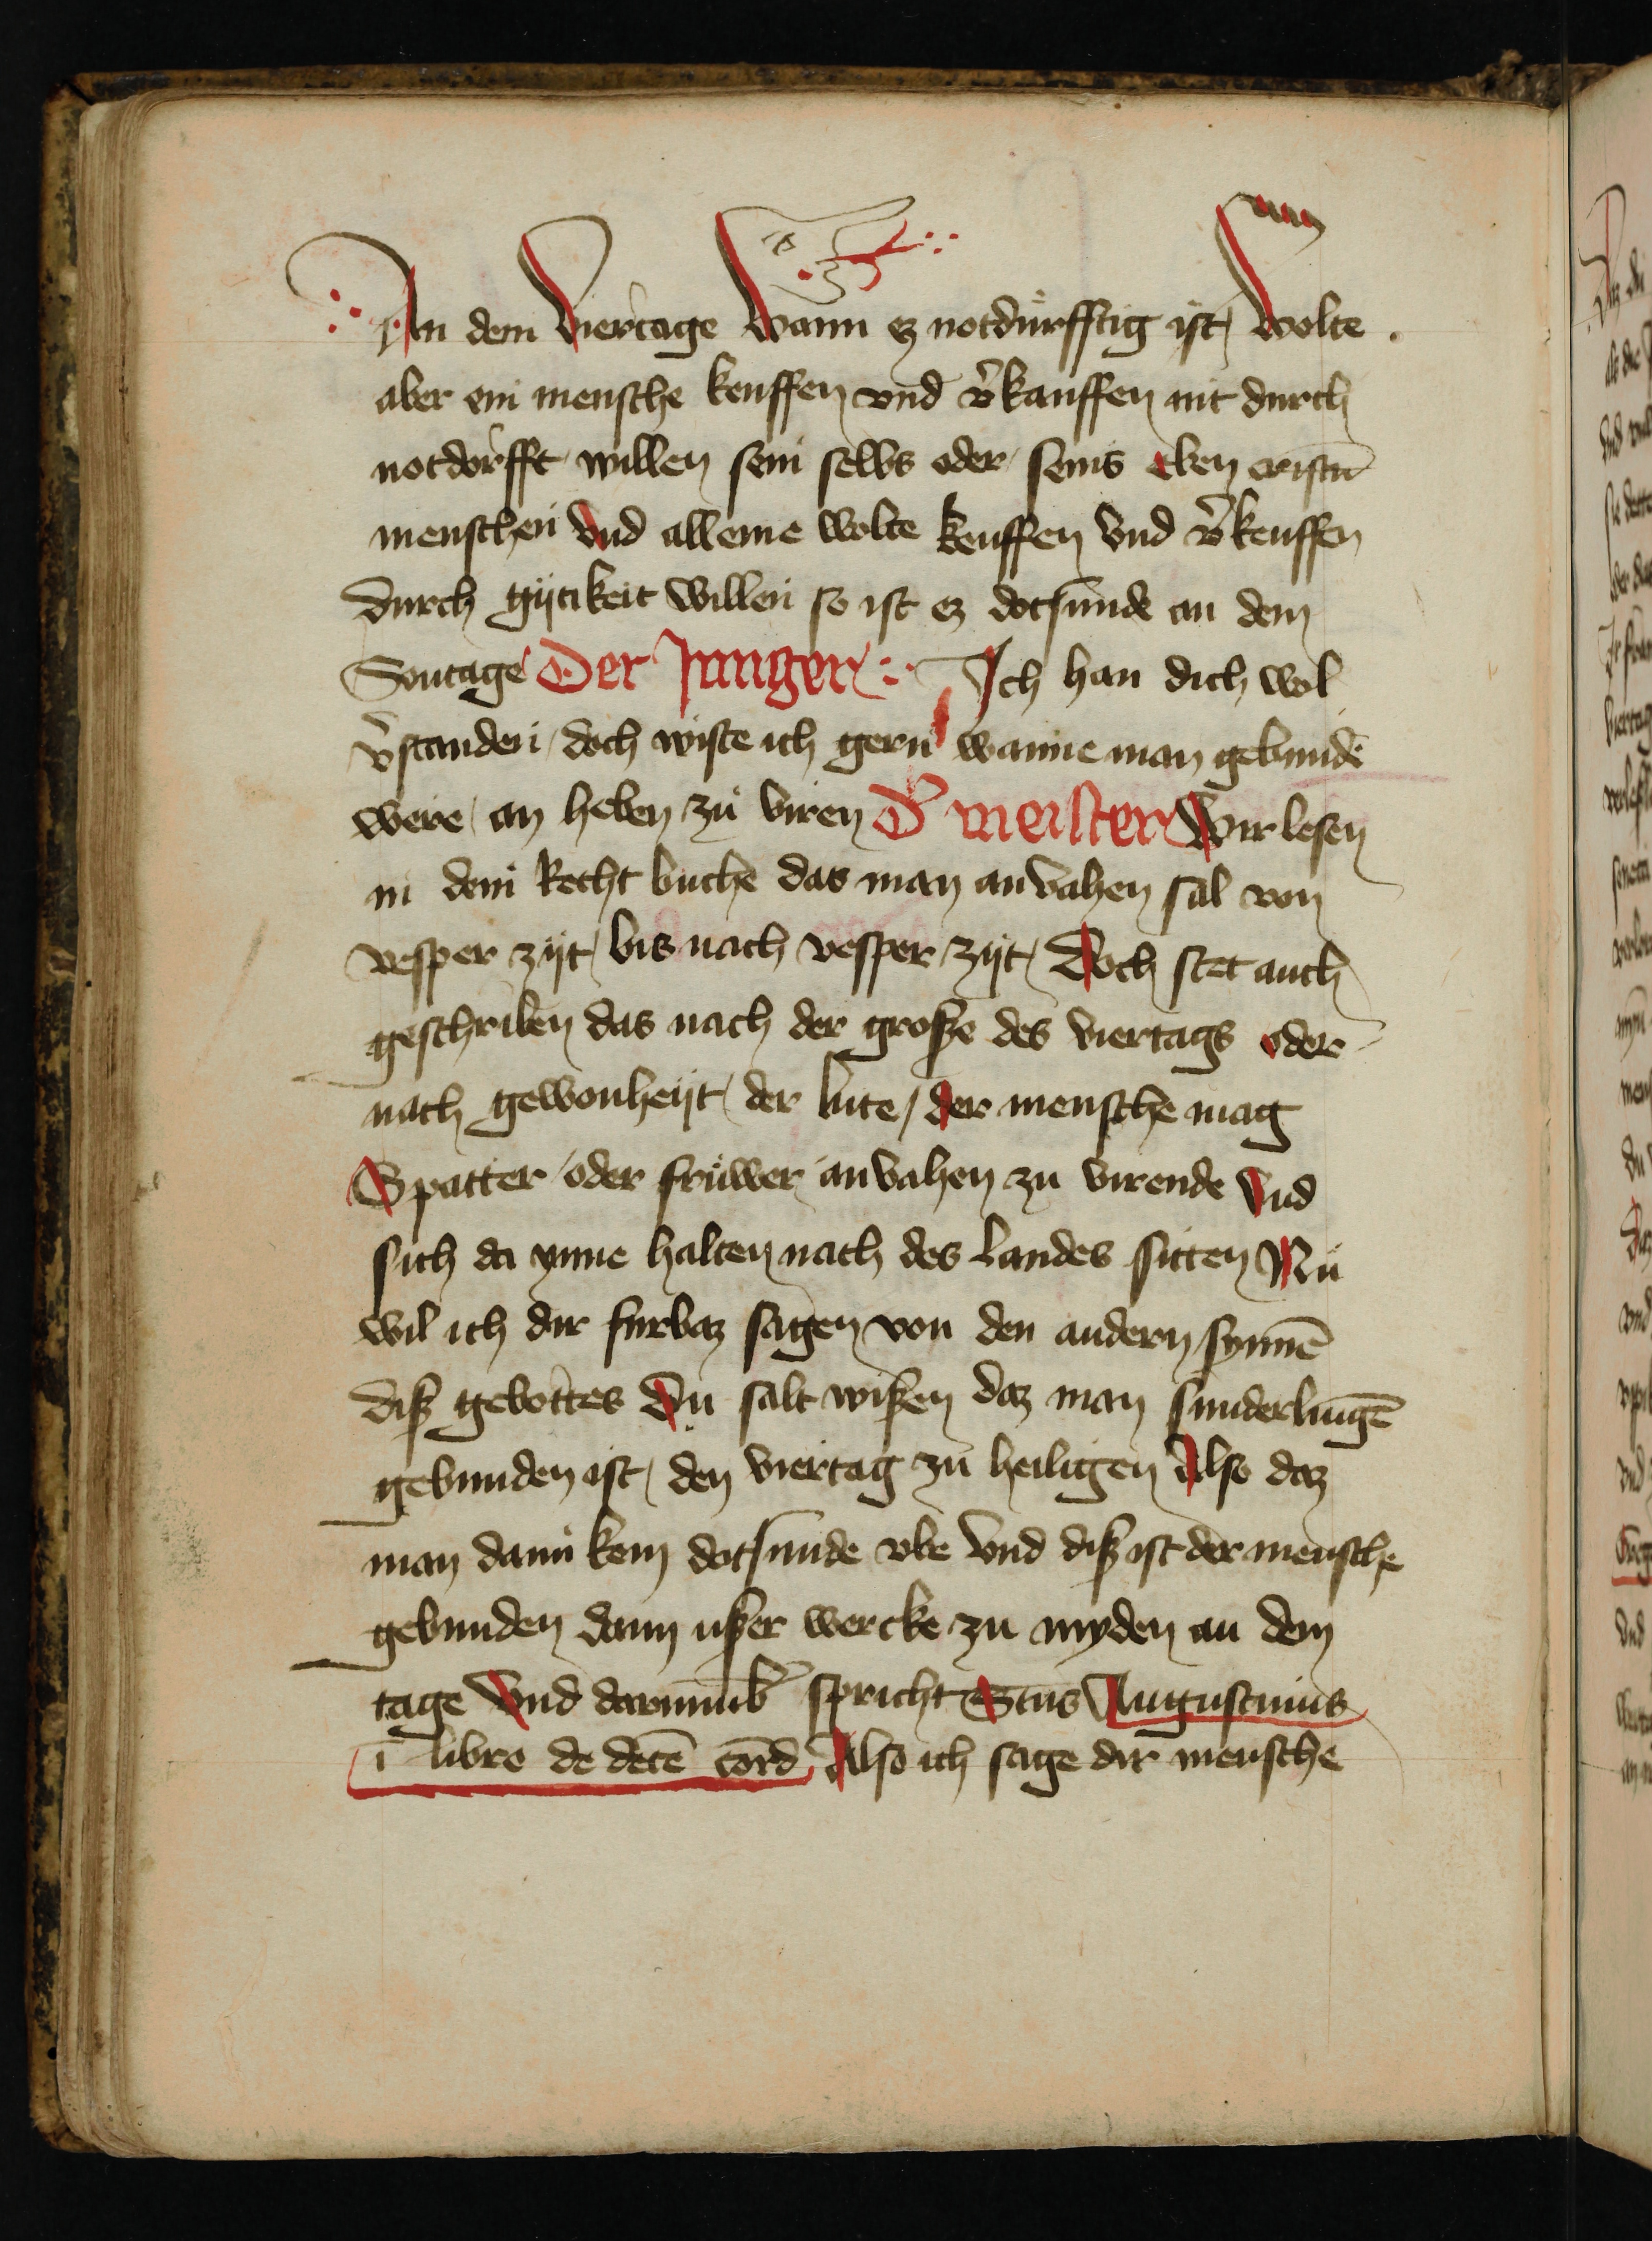 An dem viertage wann ez notdurfftig ist wolte
aber ein mensche keuffen vnd v̉kauffen nit durch
notdorfft willen sein selbs oder seins eben cristē
menschen vnd alleine wolte keuffen vnd v̉keuffen
durch gijtikeit willen so ist ez dotsunde an dem
Sontage Der Junger Ich han dich wol
v̉standen doch wiste ich gern wanne man gebundē
were an heben zu viren D̉ meister Wir lesen
in dem Recht buche das man anvahen sal von
vesper zijt bis nach vesper zijt Doch stet auch
geschriben das nach der große des viertags oder
nach gewonheijt der lute / der mensche mag
Spatter oder fruwer anvahen zu virende vnd
sich da ynne halten nach des landes sitten Nu
wil ich dir furbaz sagen von den andern synnē
diß gebottes Du salt wißen daz man sunderlingē
gebunden ist den viertag zu heiligen Also daz
man dann kein dotsunde vbe vnd diß ist der mensche
gebunden dann ußer wercke zu myden an dem
tage vnd darumb spricht Sctus Augustinus
ī libro de decē cord Also ich sage dir mensche